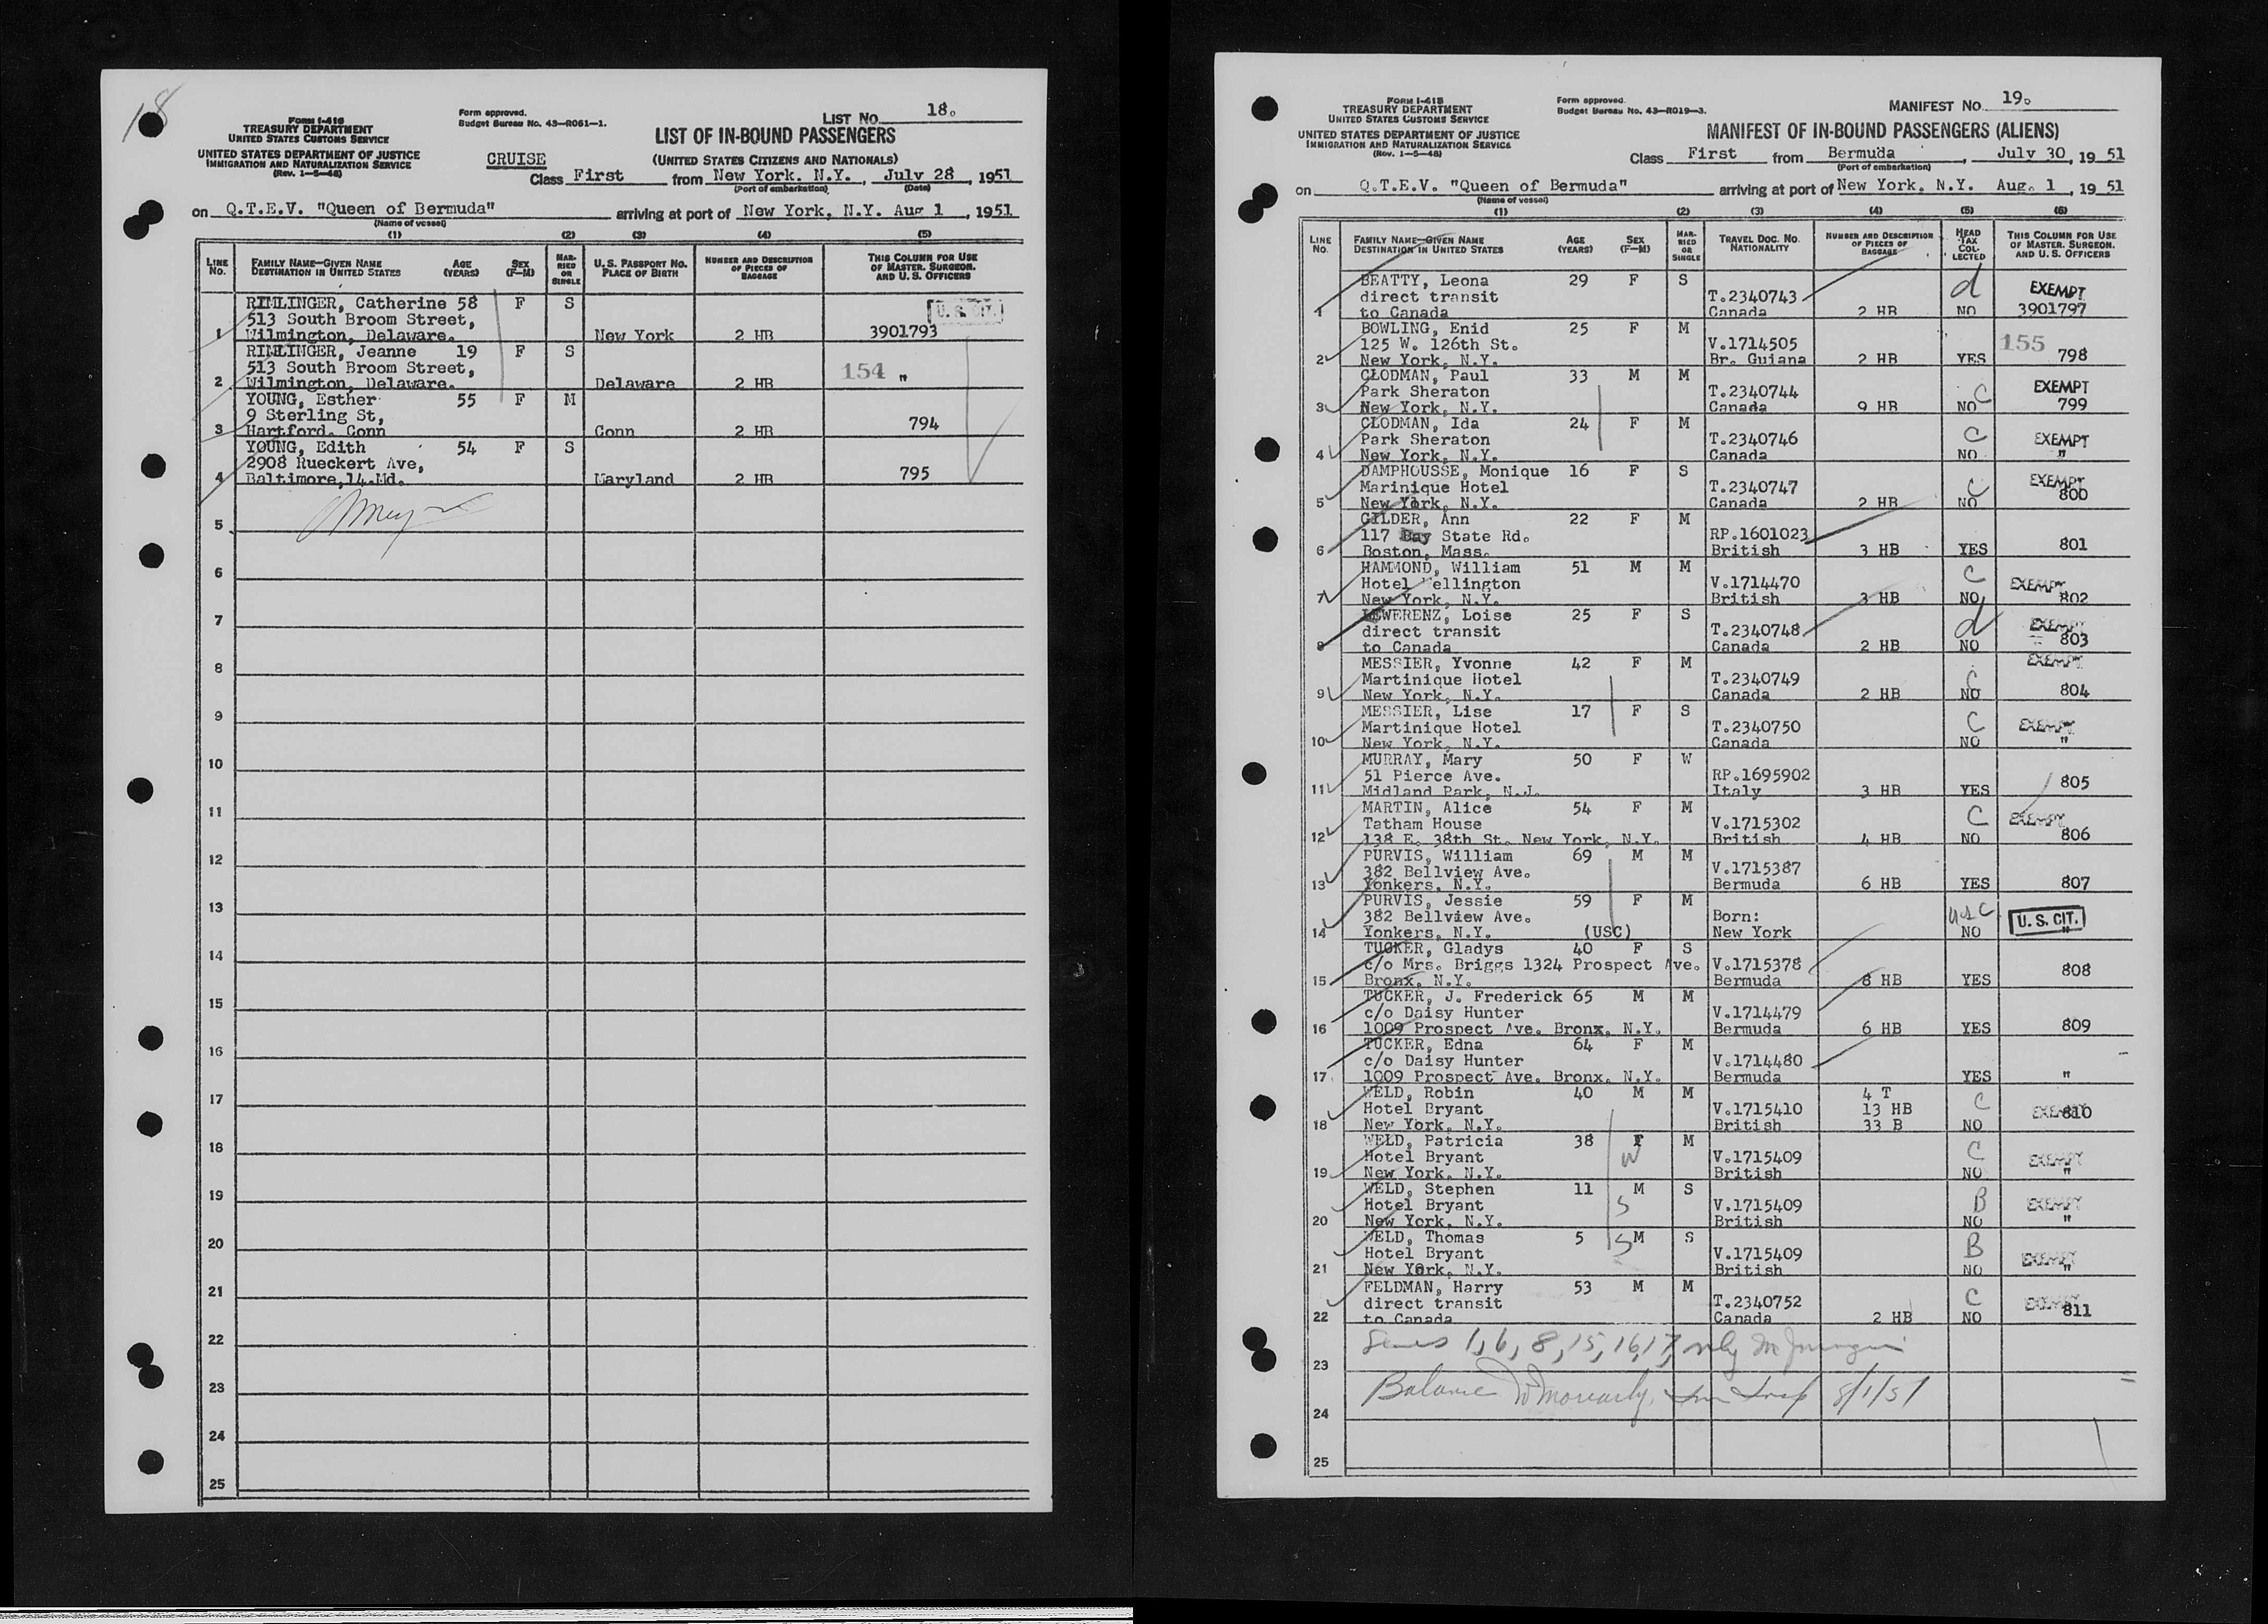 18
FORM I-416
TREASURY DEPARTMENT
UNITED STATES CUSTOMS SERVICE
UNITED STATES DEPARTMENT OF JUSTICE
IMMIGRATION AND NATURALIZATION SERVICE
(Rev. 1-5-48)
Form approved.
Budget Bureau No. 43-R061-1.
LIST No. 18.
LIST OF IN-BOUND PASSENGERS
(UNITED STATES CITIZENS AND NATIONALS)
CRUISE
Class First from New York. N.Y., July 28, 1951
(Port of embarkation) (Date)
on Q.T.E.V. "Queen of Bermuda" arriving at port of New York, N.Y. Aug 1, 1951
(Name of vessel)
(1) (2) (3) (4) (5)
LINE No. FAMILY NAME—GIVEN NAME DESTINATION IN UNITED STATES AGE (YEARS) SEX (F-M) MARRIED OR SINGLE U.S. PASSPORT NO. PLACE OF BIRTH NUMBER AND DESCRIPTION OF PIECES OF BAGGAGE THIS COLUMN FOR USE OF MASTER, SURGEON, AND U.S. OFFICERS
RIMLINGER, Catherine 58 F S U.S. CIT.
513 South Broom Street,
1 Wilmington, Delaware. New York 2 HB 3901793
RIMLINGER, Jeanne 19 F S
513 South Broom Street, 154 "
2 Wilmington, Delaware. Delaware 2 HB
YOUNG, Esther 55 F M
9 Sterling St, 794
3 Hartford. Conn Conn 2 HB
YOUNG, Edith 54 F S
2908 Rueckert Ave,
4 Baltimore,14.Md. Maryland 2 HB 795
5
6
7
8
9
10
11
12
13
14
15
16
17
18
19
20
21
22
23
24
25
FORM I-415
TREASURY DEPARTMENT
UNITED STATES CUSTOMS SERVICE
UNITED STATES DEPARTMENT OF JUSTICE
IMMIGRATION AND NATURALIZATION SERVICE
(Rev. 1-5-48)
Form approved.
Budget Bureau No. 43-R019-3.
MANIFEST No. 19.
MANIFEST OF IN-BOUND PASSENGERS (ALIENS)
Class First from Bermuda, July 30, 1951
(Port of embarkation)
on Q.T.E.V. "Queen of Bermuda" arriving at port of New York. N.Y. Aug. 1, 1951
(Name of vessel)
(1) (2) (3) (4) (5) (6)
LINE No. FAMILY NAME—GIVEN NAME DESTINATION IN UNITED STATES AGE (YEARS) SEX (F-M) MARRIED OR SINGLE TRAVEL DOC. NO. NATIONALITY NUMBER AND DESCRIPTION OF PIECES OF BAGGAGE HEAD TAX COLLECTED THIS COLUMN FOR USE OF MASTER, SURGEON, AND U.S. OFFICERS
BEATTY, Leona 29 F S d EXEMPT
direct transit T.2340743
1 to Canada Canada 2 HB NO 3901797
BOWLING, Enid 25 F M
125 W. 126th St. V.1714505 155
2 New York, N.Y. Br. Guiana 2 HB YES 798
CLODMAN, Paul 33 M M EXEMPT
Park Sheraton T.2340744 C
3 New York, N.Y. Canada 9 HB NO 799
CLODMAN, Ida 24 F M C
Park Sheraton T.2340746 EXEMPT
4 New York, N.Y. Canada NO "
DAMPHOUSSE, Monique 16 F S EXEMPT
Marinique Hotel T.2340747 C
5 New York, N.Y. Canada 2 HB NO 800
GILDER, Ann 22 F M
117 Bay State Rd. RP.1601023
6 Boston, Mass. British 3 HB YES 801
HAMMOND, William 51 M M C
Hotel Wellington V.1714470 EXEMPT
7 New York, N.Y. British 3 HB NO 802
LEWERENZ, Loise 25 F S d
direct transit T.2340748 EXEMPT
8 to Canada Canada 2 HB NO 803
MESSIER, Yvonne 42 F M EXEMPT
Martinique Hotel T.2340749 C
9 New York, N.Y. Canada 2 HB NO 804
MESSIER, Lise 17 F S C
Martinique Hotel T.2340750 EXEMPT
10 New York, N.Y. Canada NO "
MURRAY, Mary 50 F W
51 Pierce Ave. RP.1695902
11 Midland Park, N.J. Italy 3 HB YES 805
MARTIN, Alice 54 F M C
Tatham House V.1715302 EXEMPT
12 138 E. 38th St. New York, N.Y. British 4 HB NO 806
PURVIS, William 69 M M
382 Bellview Ave. V.1715387
13 Yonkers, N.Y. Bermuda 6 HB YES 807
PURVIS, Jessie 59 F M
382 Bellview Ave. Born: USC U.S. CIT.
14 Yonkers, N.Y. (USC) New York NO "
TUCKER, Gladys 40 F S
c/o Mrs. Briggs 1324 Prospect Ave. V.1715378
15 Bronx. N.Y. Bermuda 8 HB YES 808
TUCKER, J. Frederick 65 M M
c/o Daisy Hunter V.1714479
16 1009 Prospect Ave. Bronx, N.Y. Bermuda 6 HB YES 809
TUCKER, Edna 64 F M
c/o Daisy Hunter V.1714480
17 1009 Prospect Ave. Bronx, N.Y. Bermuda YES "
WELD, Robin 40 M M 4 T
Hotel Bryant V.1715410 13 HB C EXEMPT 810
18 New York, N.Y. British 33 B NO
WELD, Patricia 38 F M C
Hotel Bryant W V.1715409 EXEMPT
19 New York, N.Y. British NO "
WELD, Stephen 11 M S B
Hotel Bryant S V.1715409 EXEMPT
20 New York, N.Y. British NO "
WELD, Thomas 5 S M S B
Hotel Bryant V.1715409 EXEMPT
21 New York, N.Y. British NO "
FELDMAN, Harry 53 M M C
direct transit T.2340752 EXEMPT
22 to Canada Canada 2 HB NO 811
1, 6, 8, 15, 16, 17,
23
Balance 8/1/51
24
25